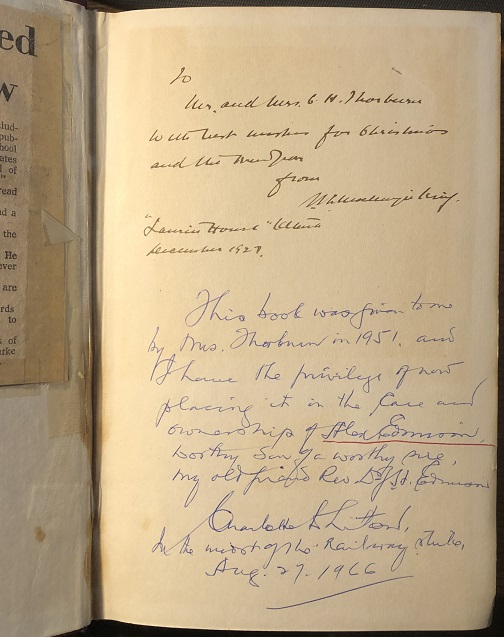 ed
w
lud-
pub-
hool
ates
l of
"
read
nd a
the
He
ever
are
ords
to
s of
urke
To
Mr. and Mrs. C. H. Thorburn
With best wishes for Christmas
and the New Year
from
W L Mackenzie King.
"Laurier House" Ottawa
December 1928.
This book was given to me
by Mrs. Thorburn in 1951, and
I have the privilege of now
placing it in the care and
ownership of Alex Edmison
worthy son of a worthy sire,
my old friend Rev. Dr. J. H. Edmison
Charlotte Whitton,
In the midst of the Railway Strike,
Aug. 27. 1966